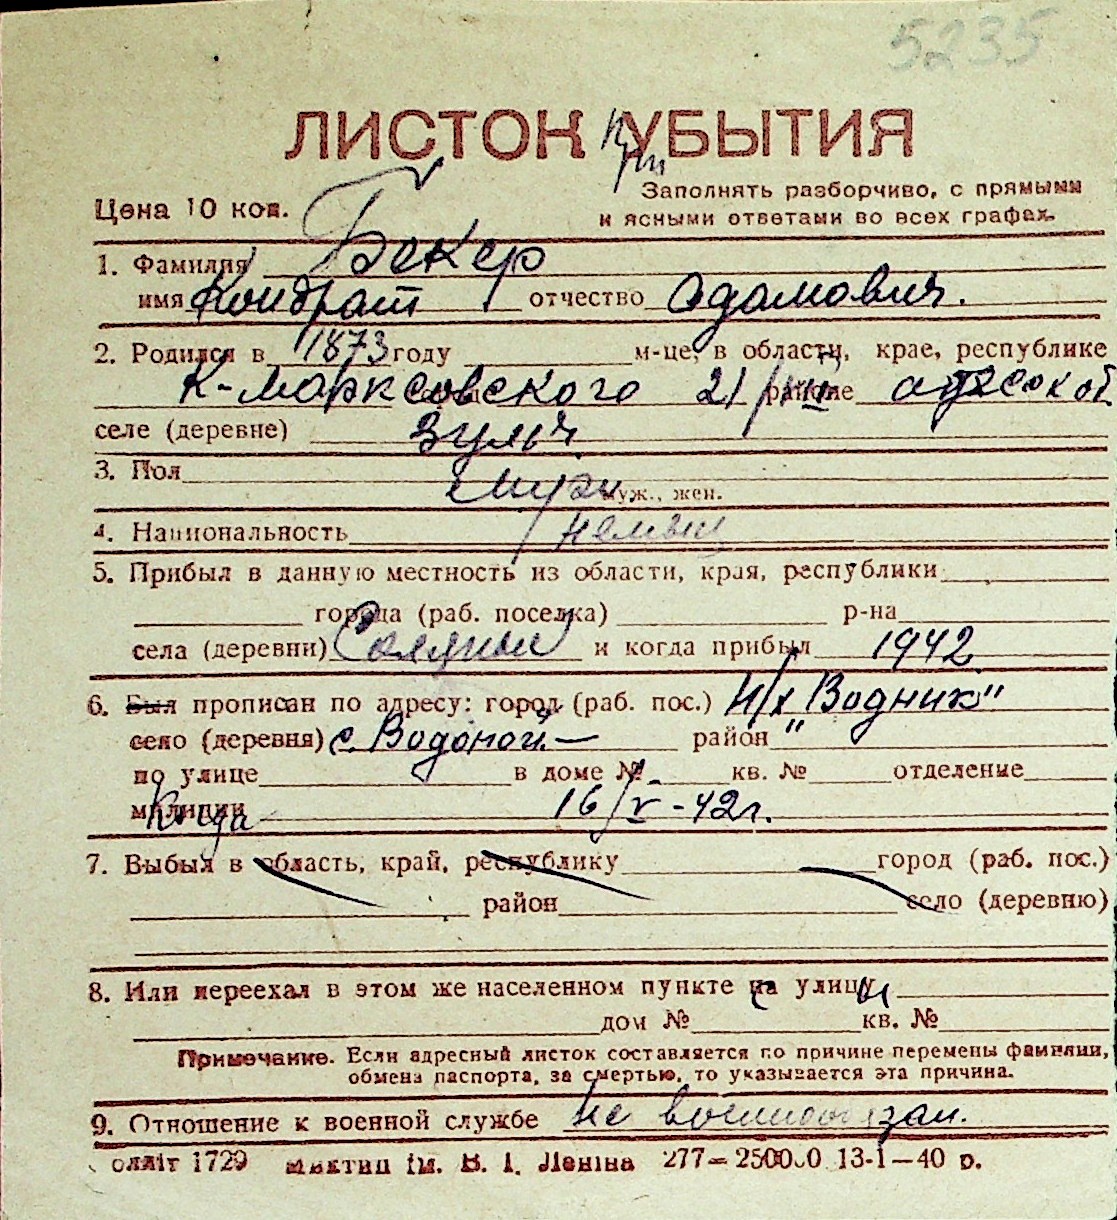 5235
ЛИСТОК УБЫТИЯ
Цена 10 коп. Заполнять разборчиво, с прямыми
и ясными ответами во всех графах.
1. Фамилия Бекер
имя Кондрат отчество Адамович.
2. Родился в 1873 году м-це, в области, крае, республике
К-Марксовского 21/VIII районе одесской
селе (деревне) Зульц
3. Пол Муж. муж., жен.
4. Национальность немец
5. Прибыл в данную местность из области, края, республики
города (раб. поселка) р-на
села (деревни) и когда прибыл 1942
6. Был прописан по адресу: город (раб. пос.) Н/х "Водник"
село (деревня) с. Водопой — район
по улице в доме № кв. № отделение
милиции Когда 16/V-42г.
7. Выбыл в область, край, республику город (раб. пос.)
район село (деревню)
8. Или переехал в этом же населенном пункте на улицу
дом № кв. №
Примечание. Если адресный листок составляется по причине перемены фамилии,
обмена паспорта, за смертью, то указывается эта причина.
9. Отношение к военной службе не военнообязан.
олліт 1729 ім. В. І. Леніна 277—250000 13-1—40 р.